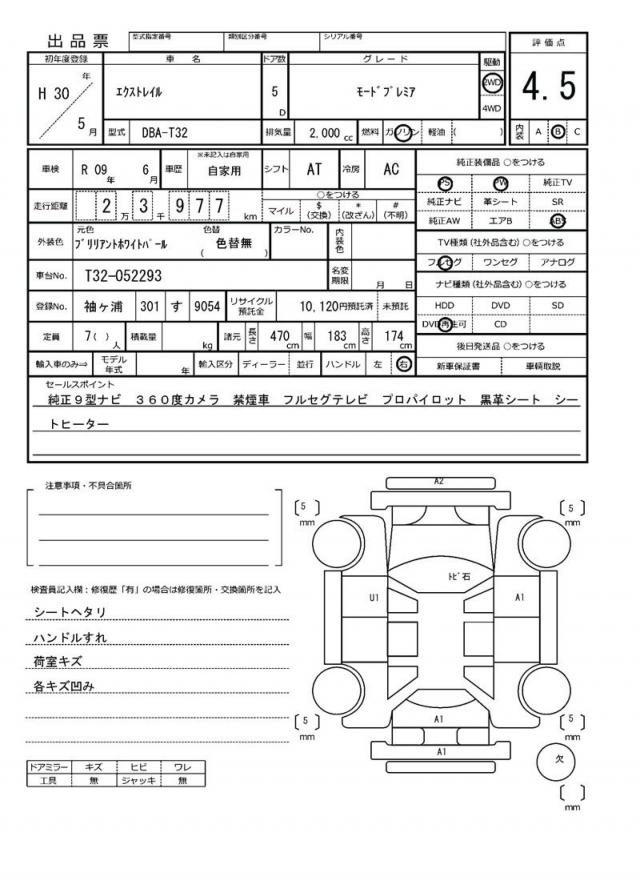 出品票 型式指定番号 類別区分番号 シリアル番号
評価点
4.5
内装 A B C
初年度登録 車名 ドア数 グレード 駆動
H 30 年 5 月 エクストレイル 5 D モードプレミア 2WD 4WD
型式 DBA-T32 排気量 2,000 cc 燃料 ガソリン 軽油 ( )
車検 R 09 年 6 月 車歴 ※未記入は自家用 自家用 シフト AT 冷房 AC
走行距離 2 万 3 千 9 7 7 km ○をつける マイル $ (交換) * (改ざん) # (不明)
外装色 元色 ブリリアントホワイトパール 色替 ( 色替無 ) カラーNo. 内装色
車台No. T32-052293 名変期限 月 日
登録No. 袖ヶ浦 301 す 9054 リサイクル預託金 10,120円預託済 未預託
定員 7( ) 人 積載量 kg 諸元 長さ 470 cm 幅 183 cm 高さ 174 cm
輸入車のみ⇒ モデル年式 年 輸入区分 ディーラー 並行 ハンドル 左 右
純正装備品 ○をつける
PS PW 純正TV
純正ナビ 革シート SR
純正AW エアB ABS
TV種類 (社外品含む) ○をつける
フルセグ ワンセグ アナログ
ナビ種類 (社外品含む) ○をつける
HDD DVD SD
DVD再生可 CD
後日発送品 ○をつける
新車保証書 車輌取説
セールスポイント
純正9型ナビ 360度カメラ 禁煙車 フルセグテレビ プロパイロット 黒革シート シー
トヒーター
注意事項・不具合箇所
検査員記入欄:修復歴「有」の場合は修復箇所・交換箇所を記入
シートヘタリ
ハンドルすれ
荷室キズ
各キズ凹み
ドアミラー キズ ヒビ ワレ
工具 無 ジャッキ 無
A2
〔5〕mm 〔5〕mm
トビ石
U1 A1
A1
〔5〕mm 〔5〕mm
A1
欠
〔 〕mm